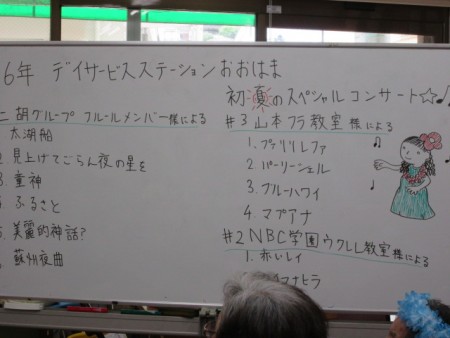 6年 デイサービスステーションおおはま
初夏のスペシャルコンサート☆♪
二胡グループ フルールメンバー様による
太湖船
2.見上げてごらん夜の星を
3.童神
4.ふるさと
5.美麗的神話?
蘇州夜曲
#3 山本フラ教室様による
1.プアリリレファ
2.パーリーシェル
3.ブルーハワイ
4.マプアナ
#2 NBC学園ウクレレ教室様による
1.赤いレイ
マナヒラ